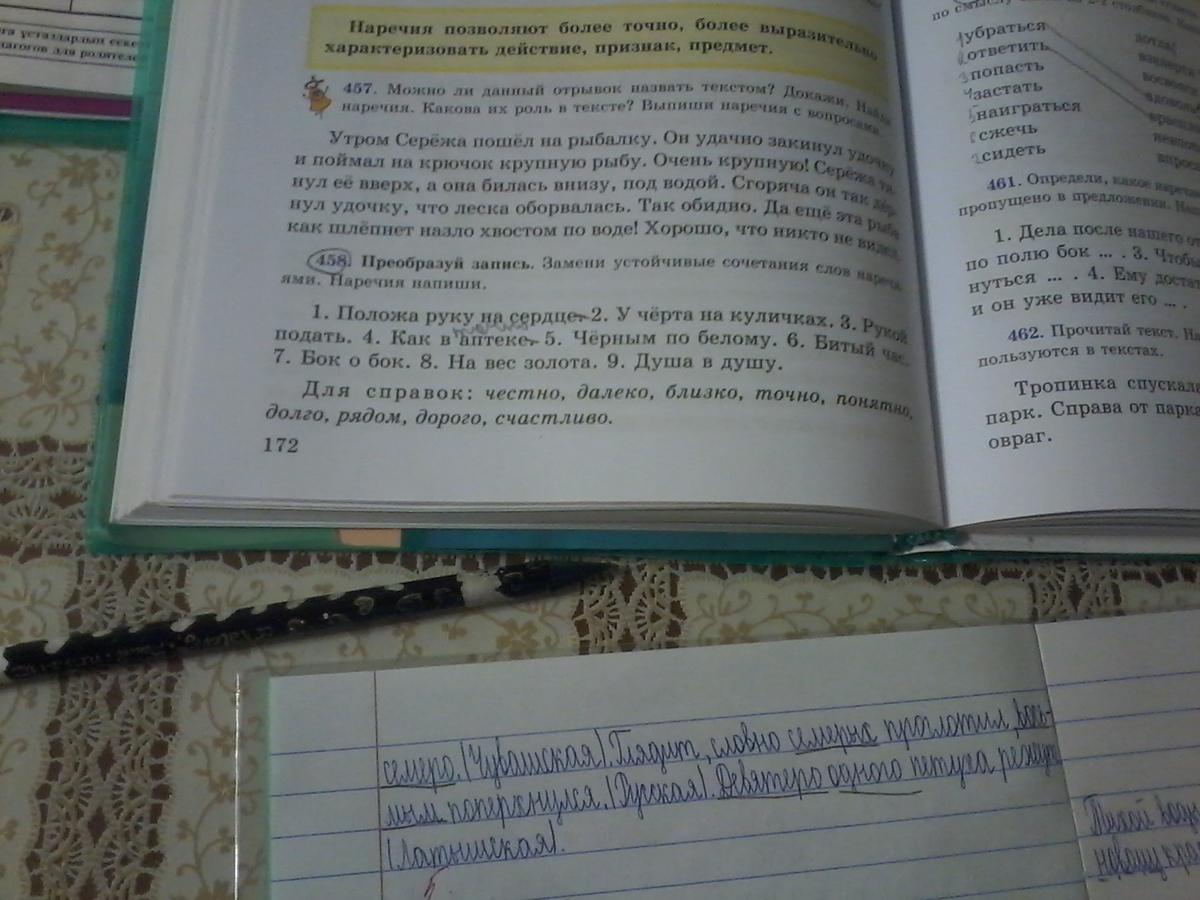 Наречия позволяют более точно, более выразительно
характеризовать действие, признак, предмет.
457. Можно ли данный отрывок назвать текстом? Докажи. Найди
наречия. Какова их роль в тексте? Выпиши наречия с вопросами.
Утром Серёжа пошёл на рыбалку. Он удачно закинул удочку
и поймал на крючок крупную рыбу. Очень крупную! Серёжа тя-
нул её вверх, а она билась внизу, под водой. Сгоряча он так дёр-
нул удочку, что леска оборвалась. Так обидно. Да ещё эта рыба
как шлёпнет назло хвостом по воде! Хорошо, что никто не видел.
458. Преобразуй запись. Замени устойчивые сочетания слов нареч-
иями. Наречия напиши.
1. Положа руку на сердце. 2. У чёрта на куличках. 3. Рукой
подать. 4. Как в аптеке. 5. Чёрным по белому. 6. Битый час.
7. Бок о бок. 8. На вес золота. 9. Душа в душу.
Для справок: честно, далеко, близко, точно, понятно,
долго, рядом, дорого, счастливо.
172
по смыслу
убраться
ответить
попасть
застать
наиграться
сжечь
сидеть
дотла
461. Определи, какое
пропущено в предложении.
1. Дела после нашего
по полю бок ... . 3. Чтобы
нуться ... . 4. Ему
и он уже видит его ... .
462. Прочитай текст.
пользуются в текстах.
Тропинка
парк. Справа от парка
овраг.
семеро. (Чувашская). Глядит, словно семерых проглотил, вось-
мым поперхнулся. (Русская). Девятеро одного петуха режут
(Латышская).